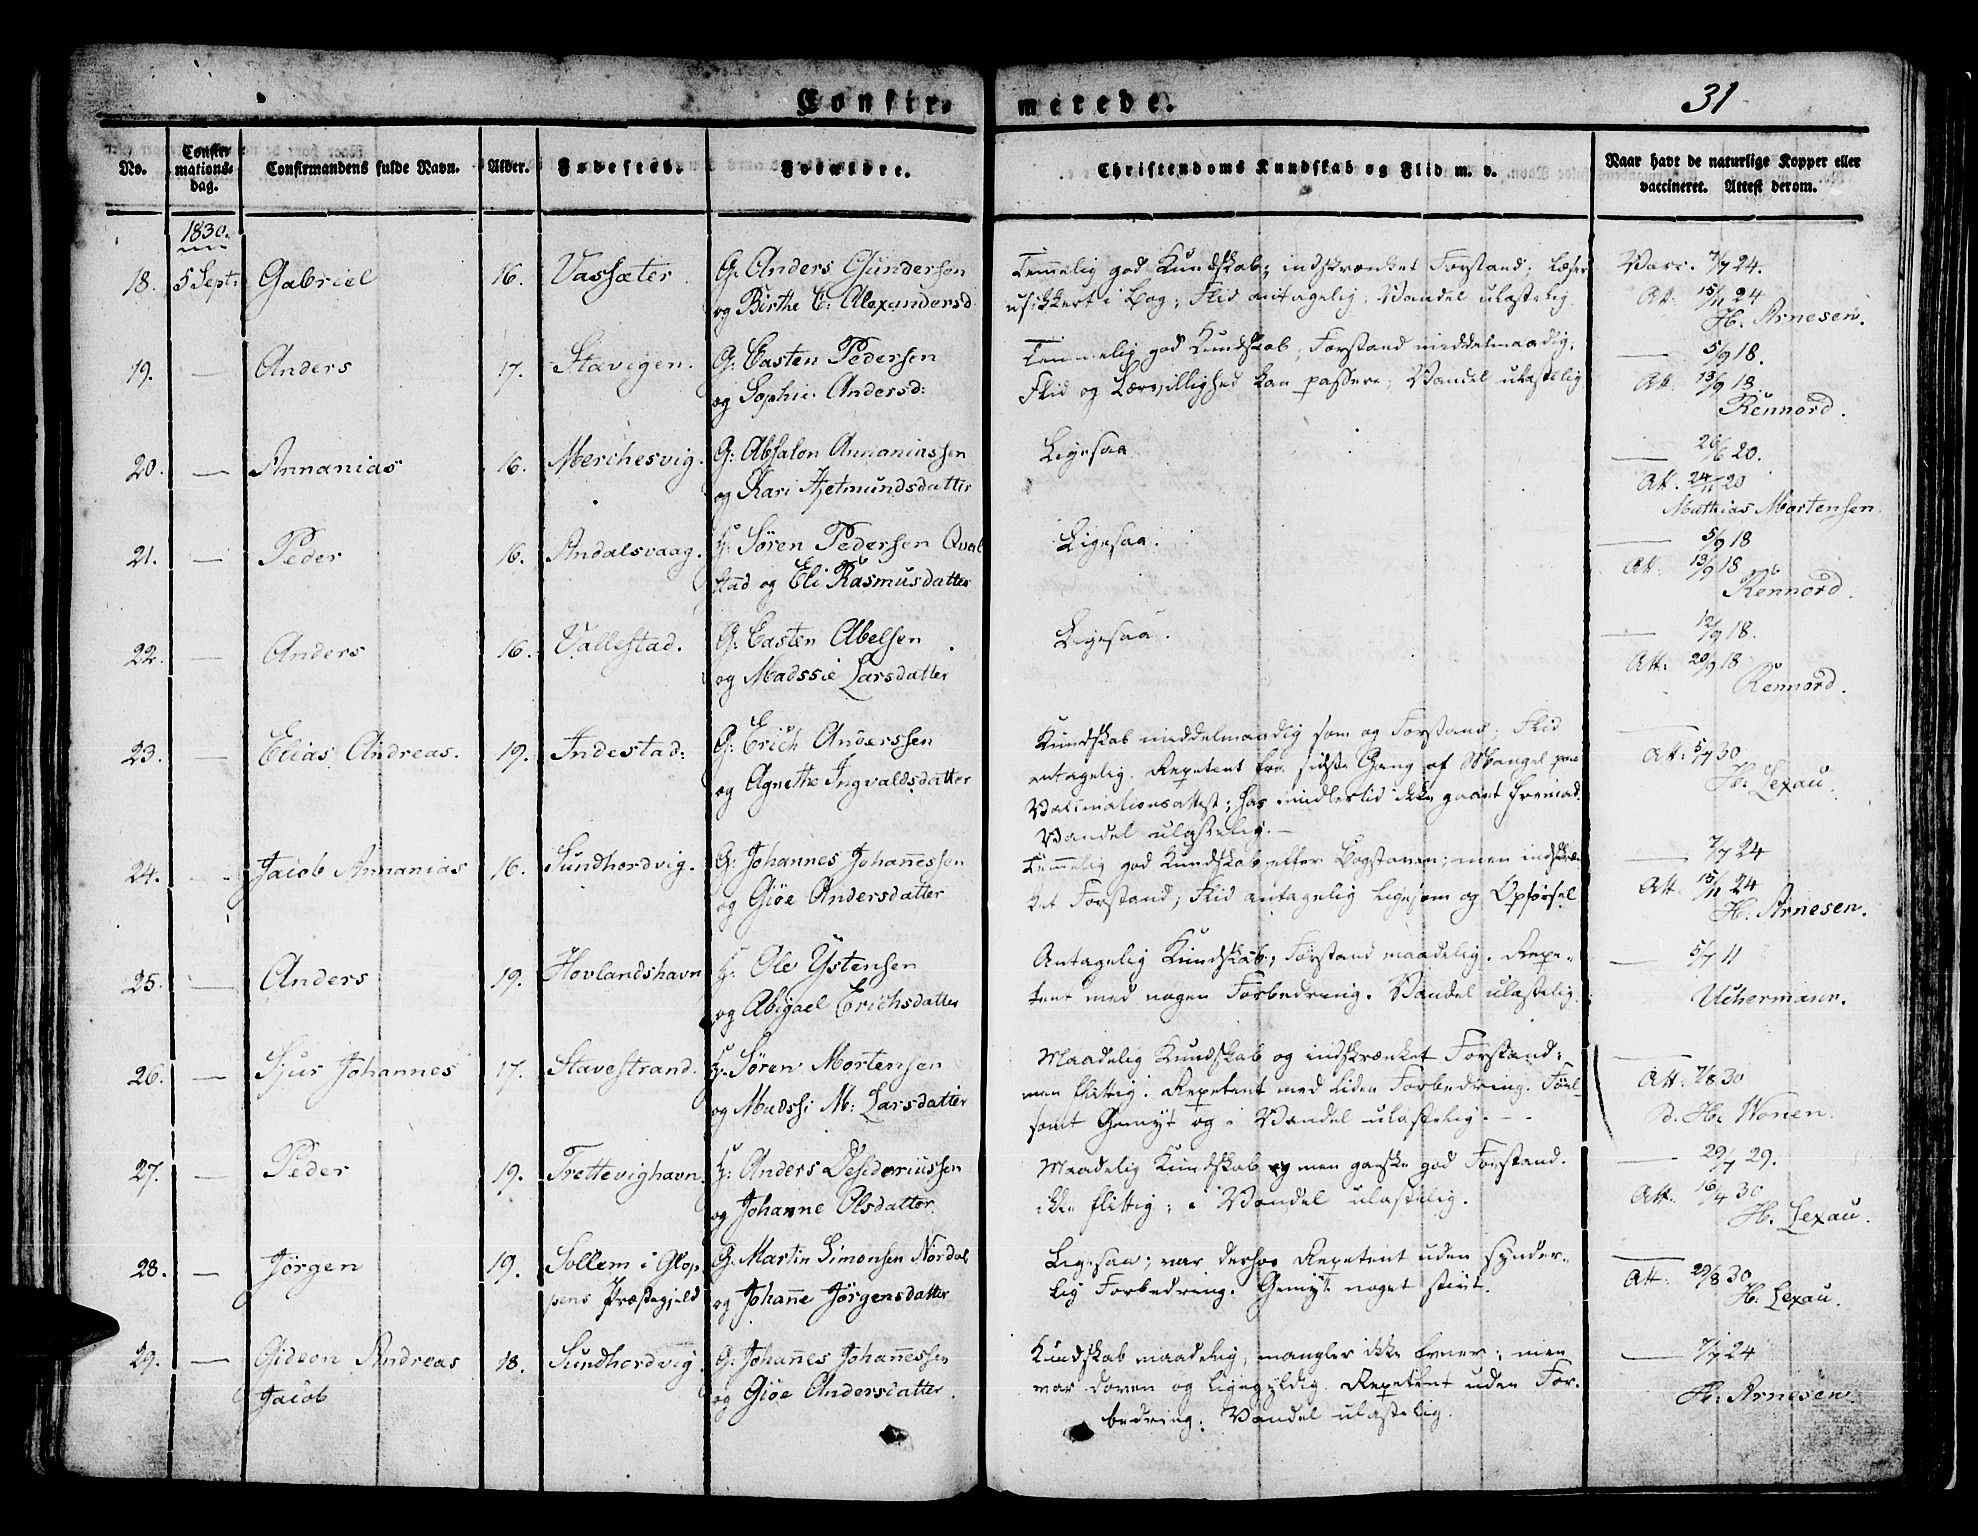 Confir-merede. 31
No. Confirmationsdag. Confirmandens fulde Navn. Alder. Fødested. Forældre. Christendoms Kundskab og Flid m. v. Naar havt de naturlige Kopper eller vaccineret. Attest derom.
1830.
18. 5 Sept: Gabriel 16. Vassæter. G: Anders Gundersen Temmelig god Kundskab; indskrænket Forstand; læser Vacc. 7/7 24.
og Birthe E: Alexandersd usikkert i Bog; Flid antagelig; Vandel ulastelig Att: 15/11 24
H. Arnesen.
19. — Anders 17. Stavigen. G: Casten Pedersen Temmelig god Kundskab; Forstand middelmaadig, — 5/9 18.
og Sophie Andersd: Flid og Lærvillighed kan passere; Vandel ulastelig Att: 13/9 18.
Rennord.
20. — Annanias 16. Merchesvig. G: Absalon Annaniassen Ligesaa — 26/6 20.
og Kari Hjetmundsdatter Att. 24/11 20
Mathias Mortensen.
21. — Peder 16. Andalsvaag. Søren Pedersen Qval Ligesaa. — 5/9 18
stad og Eli Rasmusdatter Att. 13/9 18
Rennord.
22. — Anders 16. Vallestad. G: Casten Abelsen Ligesaa. — 12/9 18.
og Madssie Larsdatter Att: 20/9 18
Rennord.
23. — Elias Andreas. 19. Indestad: G: Erich Anderssen Kundskab middelmaadig som og Forstand; Flid —
og Agnethe Ingvaldsdatter antagelig. Repetent fra sidste Gang af Mangel paa Att: 5/7 30
Vaccinationsattest; har imidlertid ikke gaaet fremad. H. Lexau.
Vandel ulastelig. —
24. — Jacob Annanias 16. Sundhordvig. G: Johannes Johannessen Temmelig god Kundskab efter Bogstaven; men indskræn — 7/7 24
og Giøe Andersdatter ket Forstand; Flid antagelig ligesom og Opførsel Att. 15/11 24
H. Arnesen.
25. — Anders 19. Hovlandshavn Ole Ystensen Antagelig Kundskab; Forstand maadelig. Repe- — 5/7 11
og Abigael Erichsdatter tent med nogen Forbedring. Vandel ulastelig. Uchermann.
26. — Sjur Johannes 17. Stavestrand. Søren Mortensen Maadelig Kundskab og indskrænket Forstand: —
og Madssi M: Larsdatter men flittig. Repetent med liden Forbedring. Føiel- Att: 7/8 30
somt Gemyt og i Vandel ulastelig. — - d. H. Wonen.
27. — Peder 19. Trettevighavn. Anders Desideriussen Maadelig Kundskab men ganske god Forstand. — 29/7 29.
og Johanne Olsdatter. ikke flittig; i Vandel ulastelig. Att. 16/4 30
H. Lexau.
28. — Jörgen 19. Sollem i Glop G: Martin Simonsen Nordal Ligesaa; var derhos Repetent uden synder- —
pens Præstegjeld og Johanne Jörgensdatter lig Forbedring. Gemyt noget stivt. Att: 29/8 30
H. Lexau.
29. — Gideon Andreas 18. Sundhordvig. G: Johannes Johannessen Kundskab maadelig, mangler ikke Evner; men — 7/7 24
Jacob og Giøe Andersdatter. var doven og ligegyldig. Repetent uden For- H. Arnesen.
bedring. Vandel ulastelig.